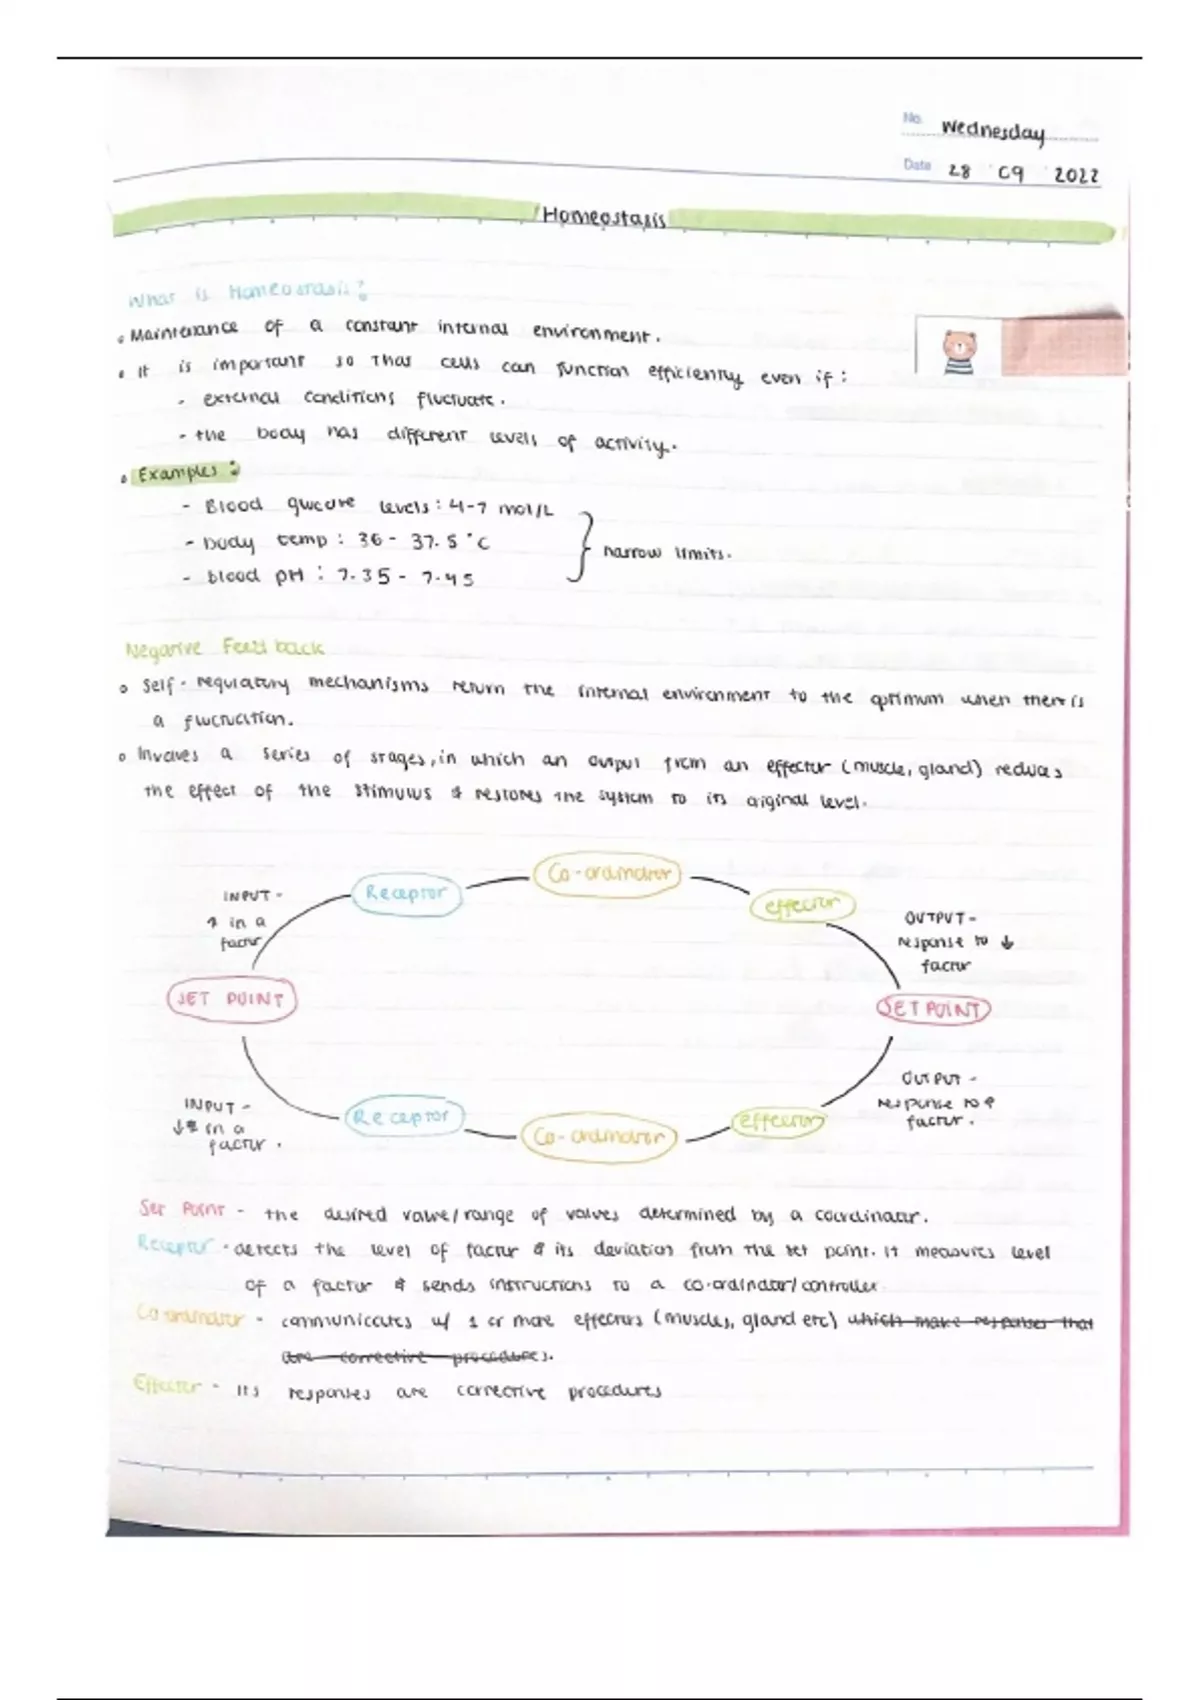 No. Wednesday
Date 28 09 2022
Homeostasis
What is Homeostasis?
Maintenance of a constant internal environment.
It is important so that cells can function efficiently even if :
- external conditions fluctuate.
- the body has different levels of activity.
Examples :
- Blood glucose levels : 4-7 mol/L
- body temp : 36 - 37.5 °C
- blood pH : 7.35 - 7.45
narrow limits.
Negative Feedback
Self-regulatory mechanisms return the internal environment to the optimum when there is
a fluctuation.
Involves a series of stages, in which an output from an effector (muscle, gland) reduces
the effect of the stimulus & restores the system to its original level.
INPUT -
↑ in a
factor
Receptor
Co-ordinator
effector
OUTPUT -
response to ↓
factor
SET POINT
SET POINT
INPUT -
↓ in a
factor.
Receptor
Co-ordinator
effector
OUTPUT -
response to ↑
factor.
Set Point - the desired value/range of values determined by a coordinator.
Receptor - detects the level of factor & its deviation from the set point. It measures level
of a factor & sends instructions to a co-ordinator/controller
Co-ordinator - communicates w/ 1 or more effectors (muscles, gland etc) which make responses that
are corrective procedures.
Effector - its responses are corrective procedures